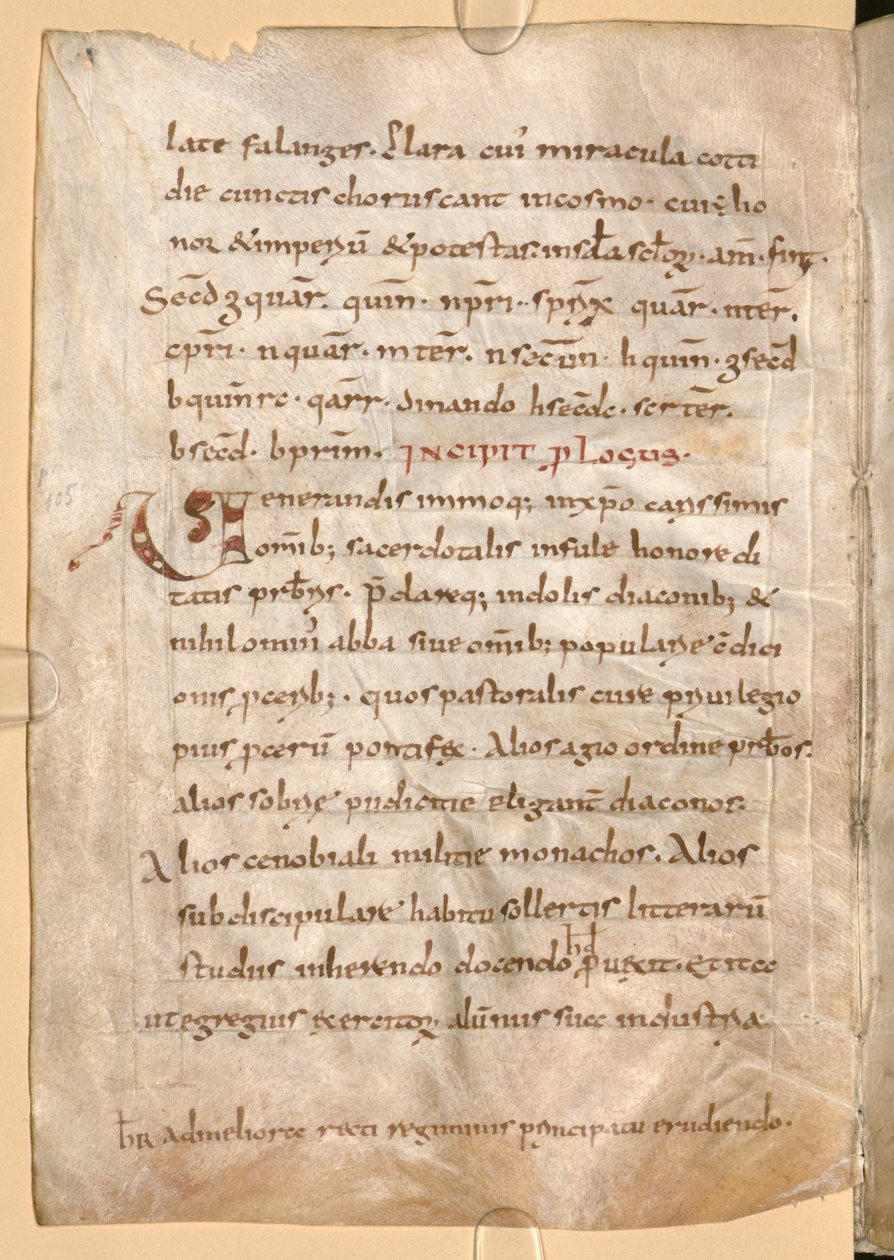 late falanges. Clara cui' miracula cotti
die cunctis choruscant incosmo. cui ę ho
nor &imperiū &potestas. insc̄la sc̄loꝝ. am̄. finit.
Sec̄d ʒ quār. quin̄. n pr̄i. sp
quār. n ter̄.
c pr̄i. n quār. m ter̄. n secūn. h quin̄. ʒ sec̄d
b quin̄ r c. q ār r. dinando h sec̄d c. s c r ter̄.
b sec̄d. b prim̄. INCIPIT PLOGUS.
Venerandis immoq; inxp̄o carissimis
om̄ib; sacerdotalis infule honore di
tatis prb̄ris. p̄clareq; indolis diaconib; &
nihilomin' abba siue om̄ib; popularię c̄dici
onis ꝓcerib;. quos pastoralis cure priuilegio
pius ꝓcerū pontifex. Alios agio ordine prb̄os.
alios sobrię pudicitie eligant̄ diaconos.
Alios cenobiali militie monachos. Alios
subdiscipulare habitu sollertis litterarū
studiis inherendo docendo hd ꝓuexit. Et ita
ut egregius exercitoꝝ alūnis sua industria
hr Admeliora recti regiminis principatu erudiendo.
105